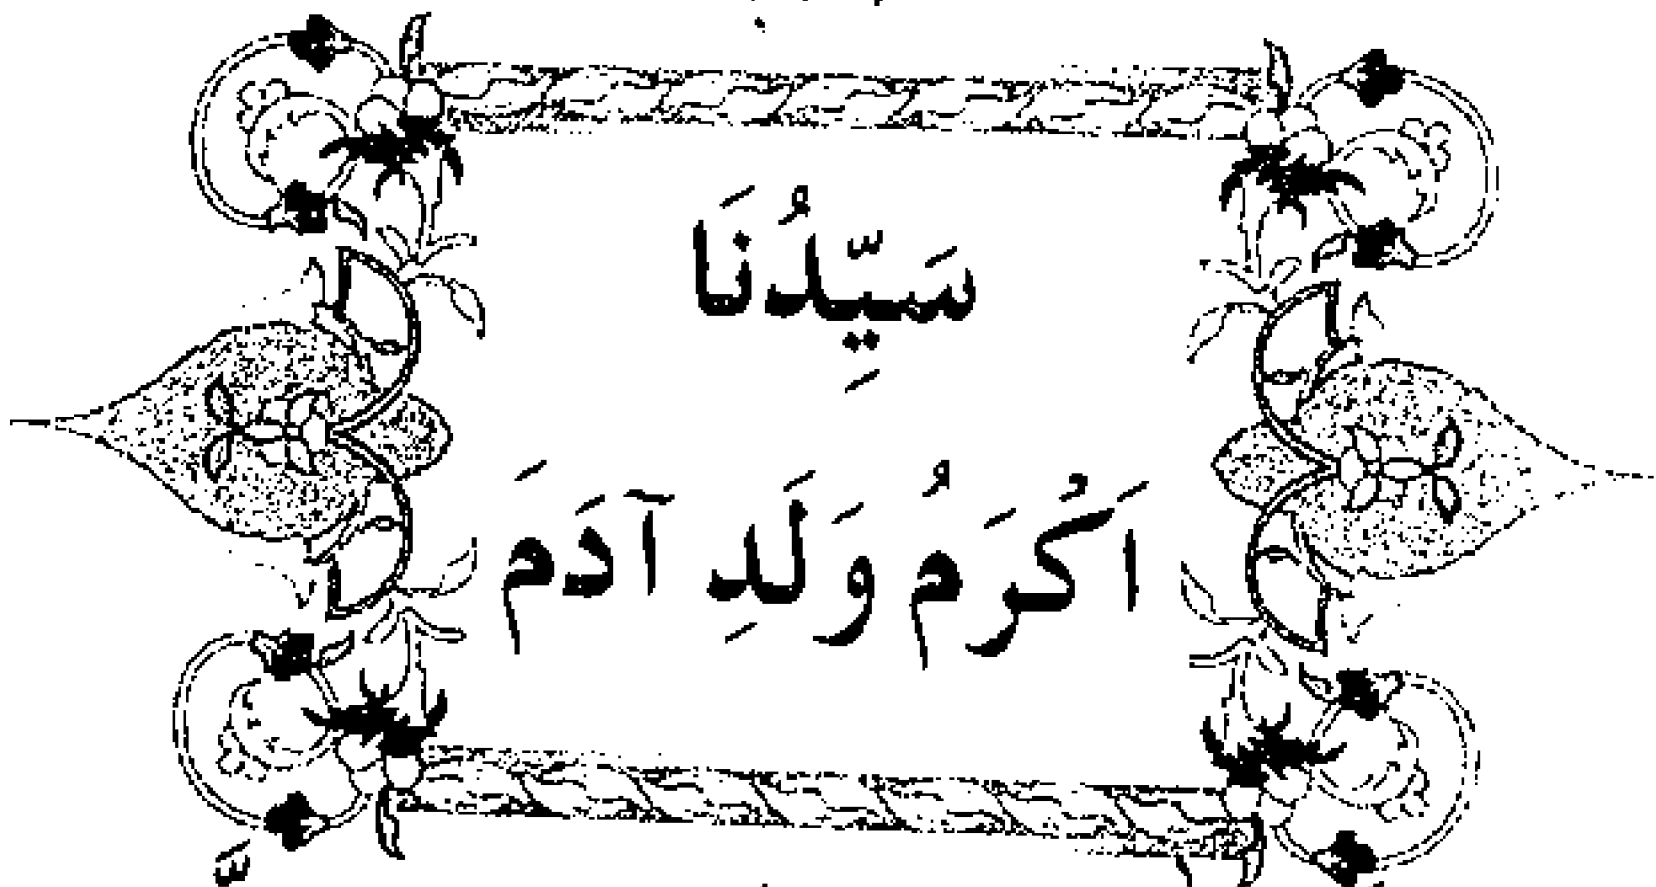 سَيِّدُنَا
اَكْرَمُ وَلَدِ آدَمَ